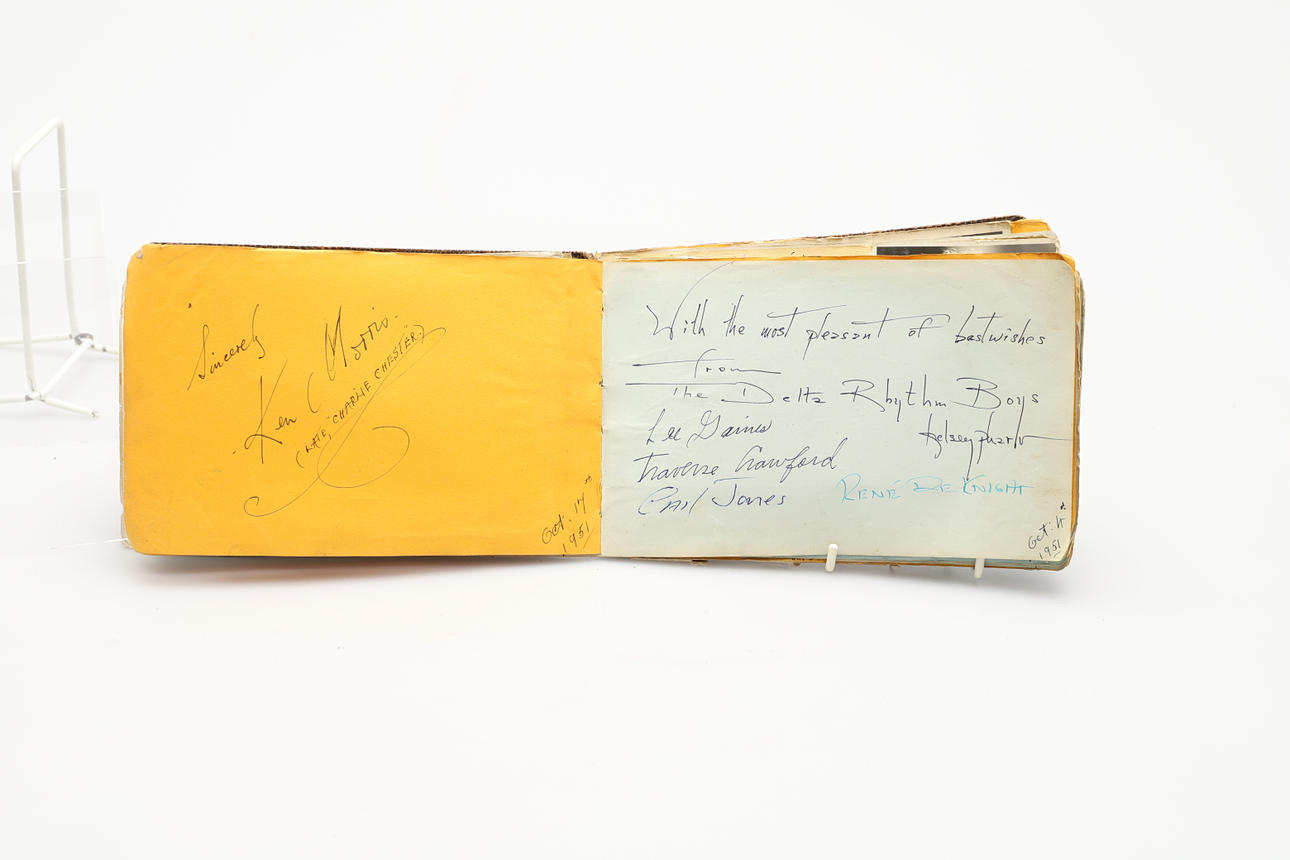 Sincerely
Ken Morris.
(LATE, "CHARLIE CHESTER")
Oct. 17th
1951
With the most pleasant of bestwishes
from
The Delta Rhythm Boys
Kelsey Pharr
Lee Gaines
Traverse Crawford
Carl Jones
RENÉ DE KNIGHT
Oct.
1951